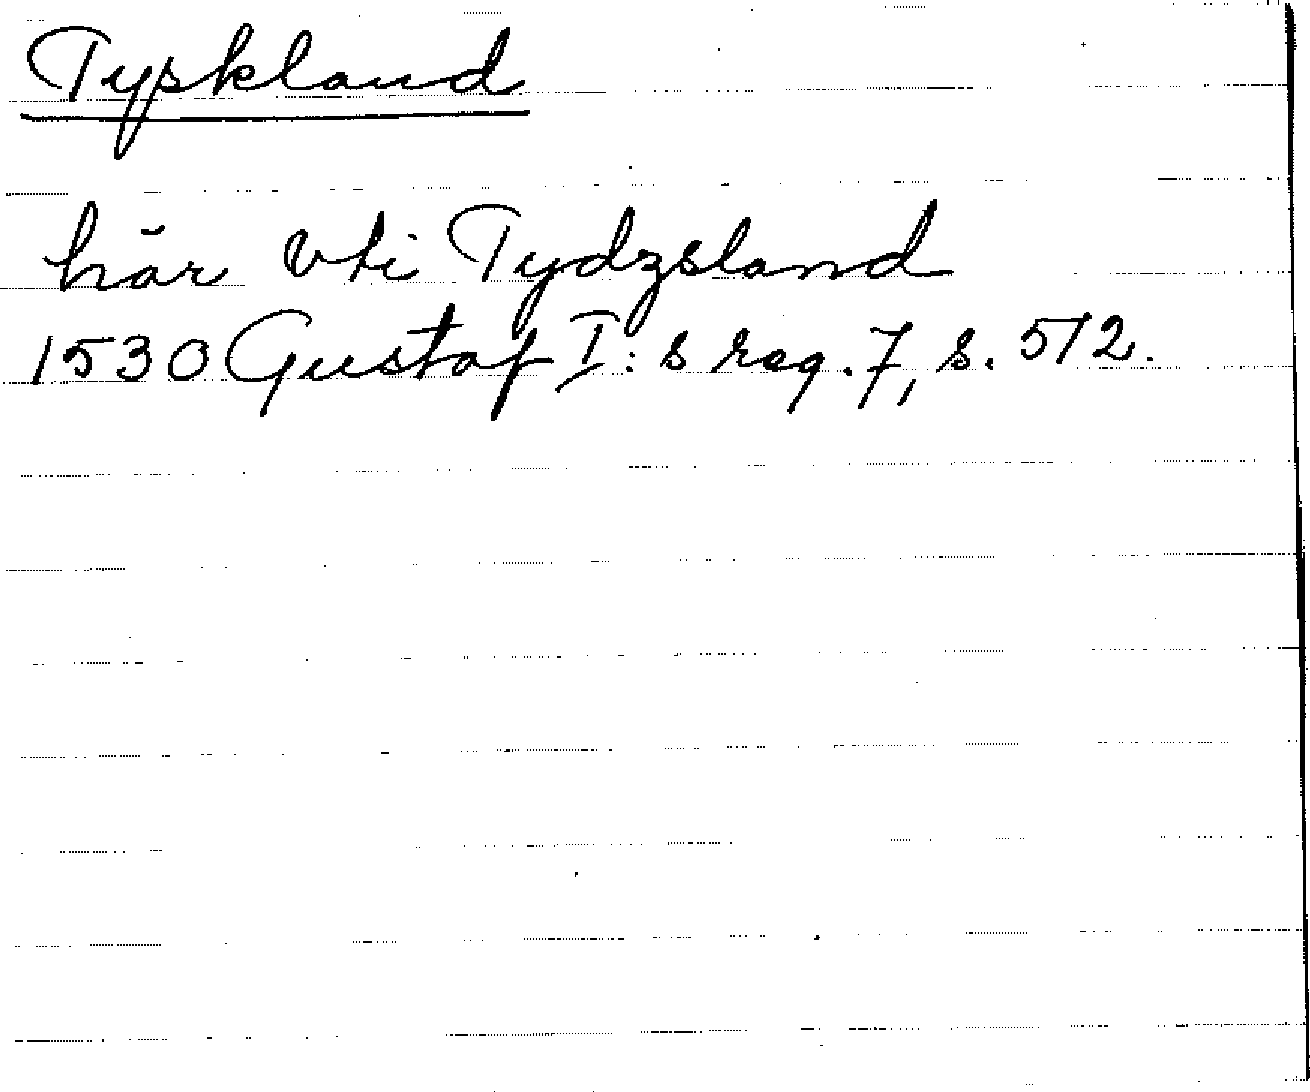 Tyskland
här vti Tydzsland
1530 Gustaf I:s reg. 7, s. 512.